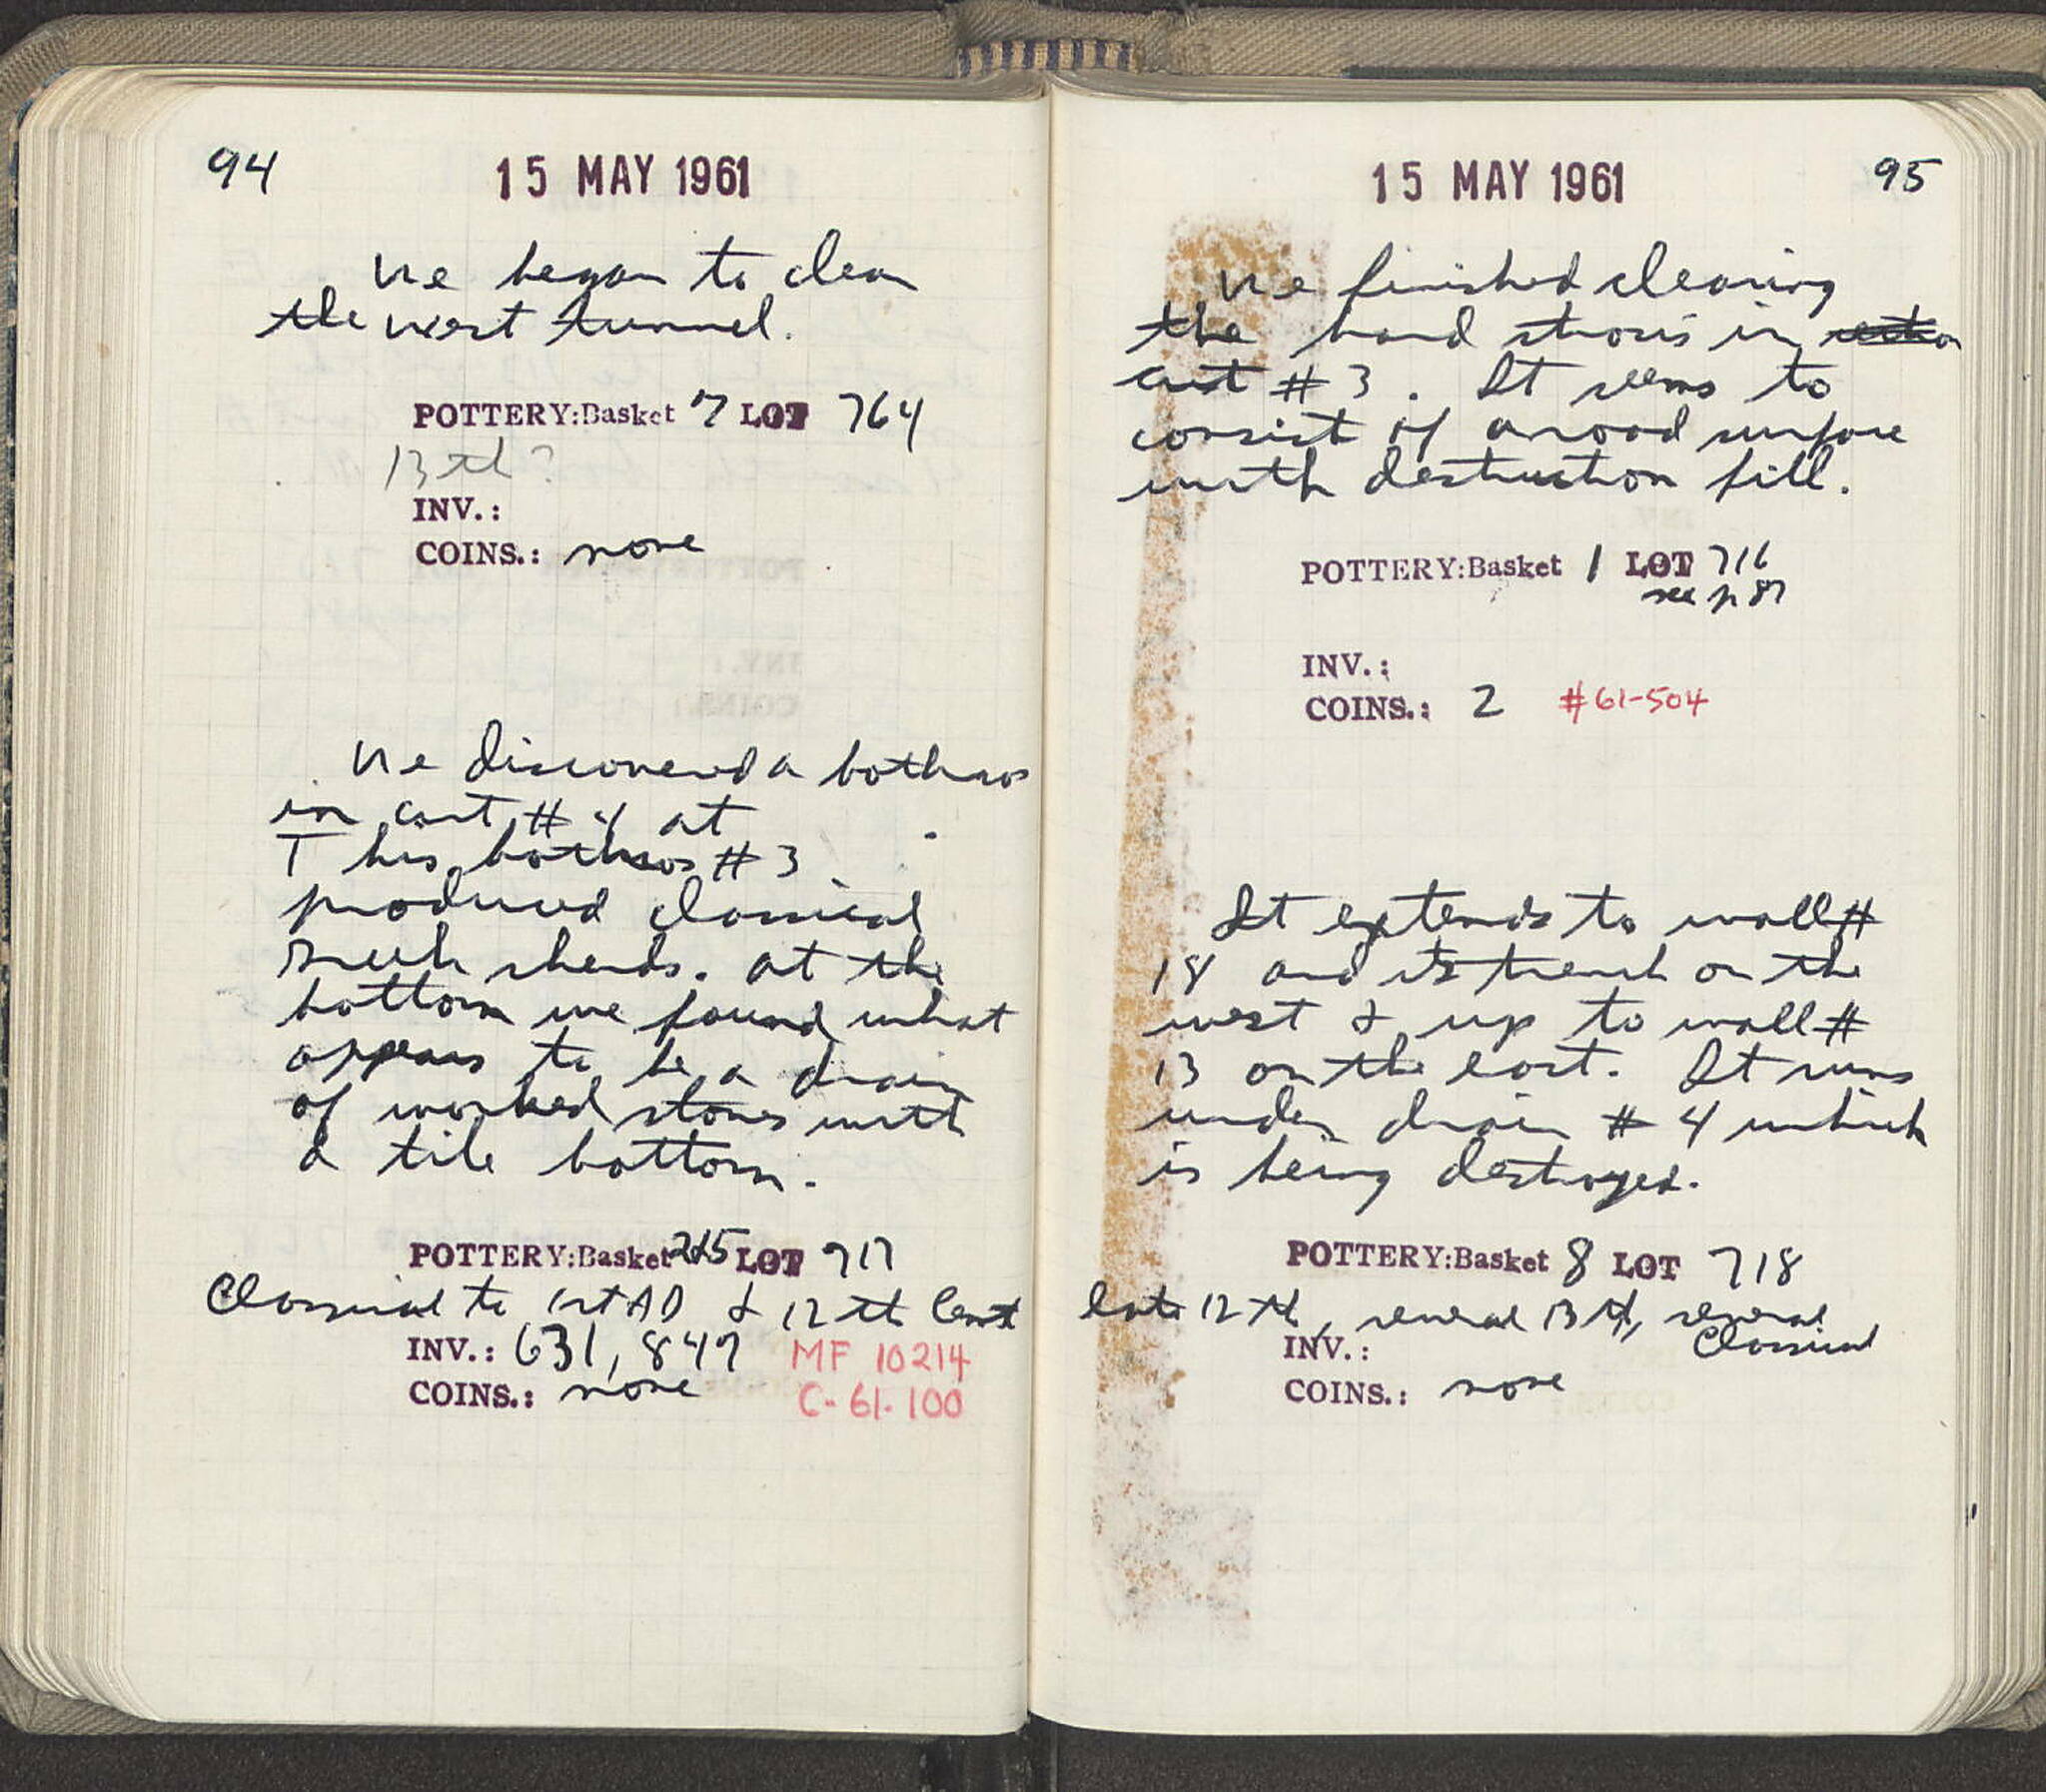 94
15 MAY 1961
We began to clean
the west tunnel.
POTTERY:Basket 7 LOT 764
13th?
INV.:
COINS.: none
We discovered a bothros
in cut # 4 at
This bothros # 3
produced classical
Greek sherds. at the
bottom we found what
appears to be a drain
of worked stones with
a tile bottom.
POTTERY:Basket LOT 717
Classical to 1st AD & 12th Cent
INV.: 631, 847 MF 10214
COINS.: none C-61-100
15 MAY 1961 95
We finished cleaning
the hard strosis in
cut # 3. It seems to
consist of a road surface
with destruction fill.
POTTERY:Basket 1 LOT 716
see p 87
INV.:
COINS.: 2 #61-504
It extends to wall #
18 and its trench on the
west & up to wall #
13 on the east. It runs
under drain # 4 which
is being destroyed.
POTTERY:Basket 8 LOT 718
late 12th, several 13th, several
Classical
INV.:
COINS.: none